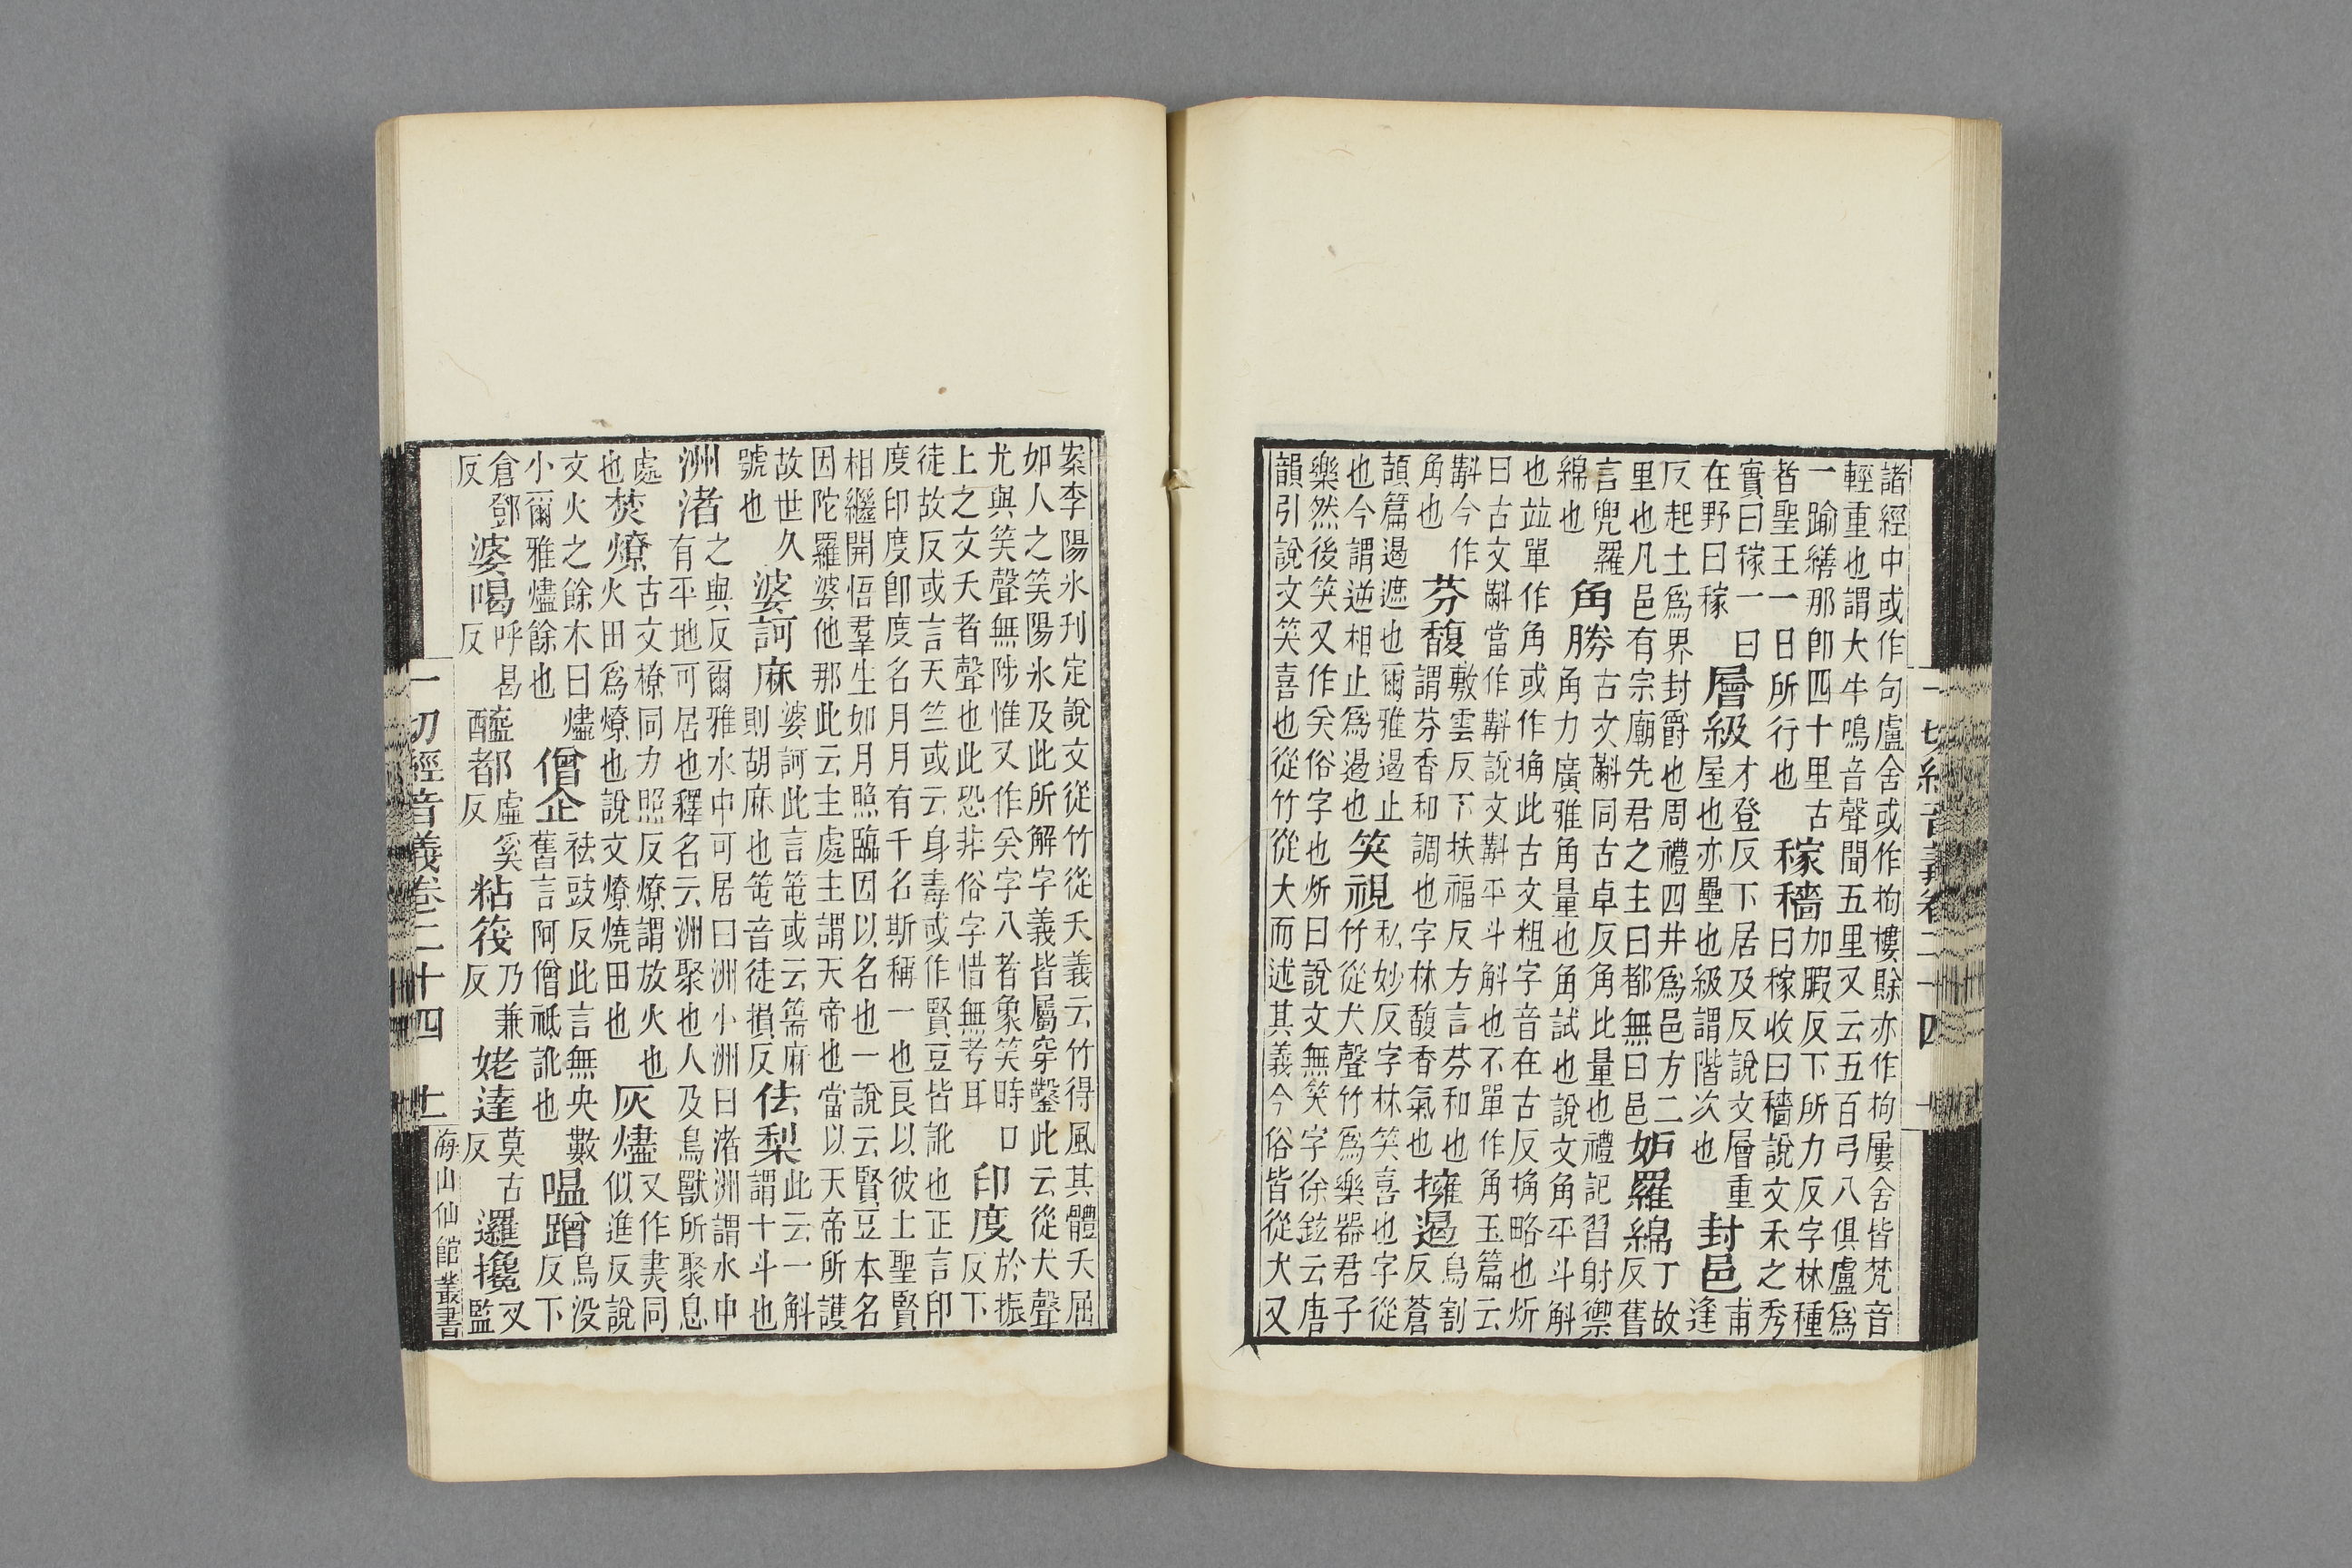 諸經中或作句盧舍或作拘樓賒亦作拘屢舍皆梵音
輕重也謂大牛鳴音聲聞五里又云五百弓八俱盧爲
一踰繕那卽四十里古者聖王一日所行也 稼穡 加暇反下所力反字林種曰稼收曰穡說文禾之秀
實曰稼一曰在野曰稼 層級 才登反下居及反說文層重屋也亦壘也級謂階次也 封邑 甫逢
反起土爲界封爵也周禮四井爲邑方二里也凡邑有宗廟先君之主曰都無曰邑 妒羅綿 丁故反舊
言兜羅綿也 角勝 古文斠同古卓反角比量也禮記習射禦角力廣雅角量也角試也說文角平斗斛
也竝單作角或作捔此古文粗字音在古反捔略也炘
曰古文斠當作斠說文斠平斗斛也不單作角玉篇云
斠今作角也 芬馥 敷雲反下扶福反方言芬和也謂芬香和調也字林馥香氣也 擁遏 烏割反蒼
頡篇遏遮也爾雅遏止也今謂逆相止爲遏也 笑視 私妙反字林笑喜也字從竹從犬聲竹爲樂器君子
樂然後笑又作㕦俗字也炘曰說文無笑字徐鉉云唐
韻引說文笑喜也從竹從犬而述其義今俗皆從犬又
一切經音義卷二十四
案李陽氷刊定說文從竹從夭義云竹得風其體夭屈
如人之笑陽氷及此所解字義皆屬穿鑿此云從犬聲
尤與笑聲無陟惟又作㕦字八者象笑時口上之文夭者聲也此恐非俗字惜無考耳 印度 於振反下
徒故反或言天竺或云身毒或作賢豆皆訛也正言印
度印度卽度名月月有千名斯稱一也良以彼土聖賢
相繼開悟羣生如月照臨因以名也一說云賢豆本名
因陀羅婆他那此云主處主謂天帝也當以天帝所護
故世久號也 婆訶麻 婆訶此言篅或云篅麻則胡麻也音徒損反 佉梨 此云一斛謂十斗也
洲渚 之與反爾雅水中可居曰洲小洲曰渚洲謂水中有平地可居也釋名云洲聚也人及鳥獸所聚息
處也 焚燎 古文尞同力照反燎謂放火也火田爲燎也說文燎燒田也 灰燼 又作㶳同似進反說
文火之餘木曰燼小爾雅燼餘也 僧企 祛豉反此言無央數舊言阿僧祇訛也 嗢蹭 烏沒反下
倉鄧反 婆喝 呼曷反 醯都 虛奚反 粘筏 乃兼反 姥達 莫古反 邏攙 叉監
一切經音義卷二十四 十一 海山仙館叢書